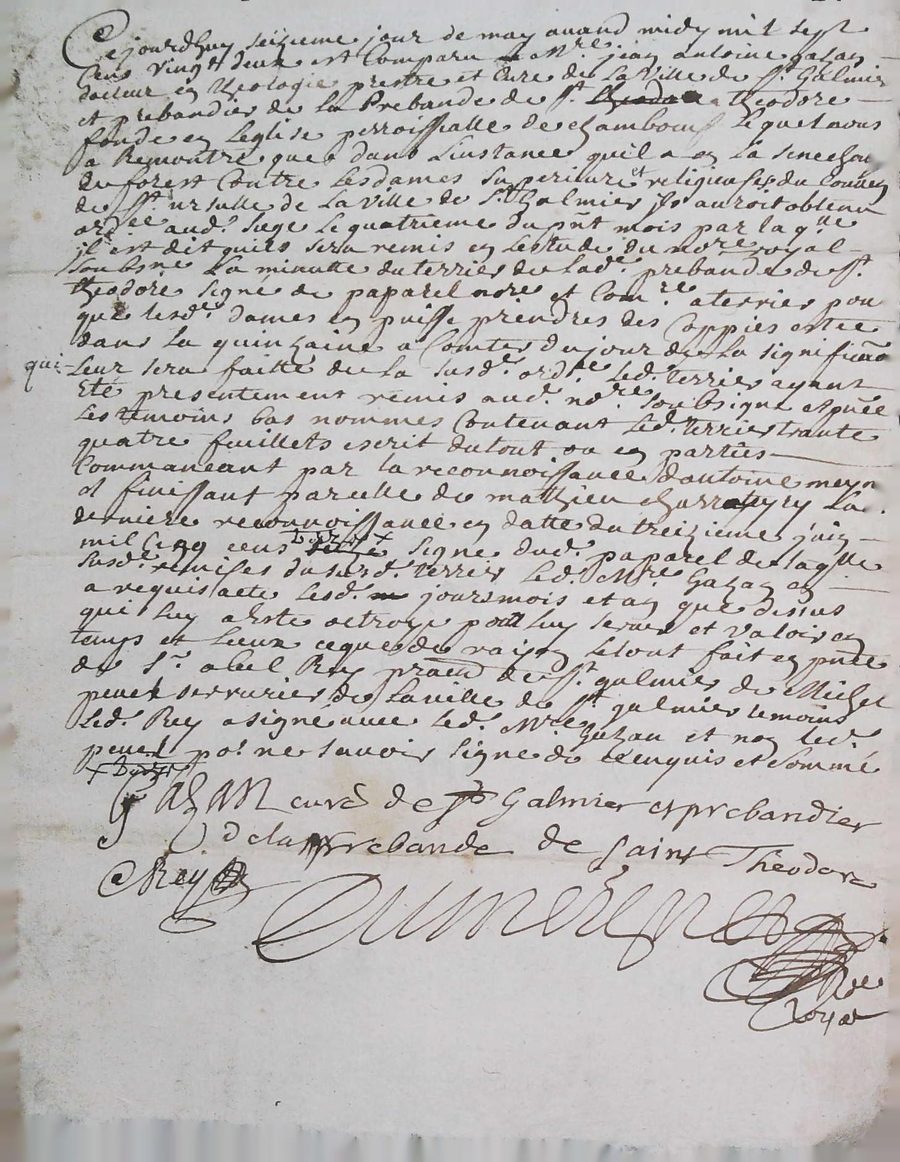 Ce jourdhuy seizieme jour de may avand midy mil sept
cens vingt deux est Comparu Mre jean antoine gazan
docteur en theologie prestre et Curé de La Ville de St Galmier
et prebandier de La Prebande de St theodore
fondé en Leglise perroissialle de chambœuf Lequel nous
a Remontré que dans Linstance quil a en La senechau
de forest Contre Les dames superieure et religieuses du Couven
de Ste ursulle de La Ville de St Galmier il auroit obtenu
ordce aud. siege Le quatrieme du pnt mois par laqlle
il est dit quil sera remis en Lestude du nore royal
soubsne La minutte du terrier de Lade prebande de St
theodore signé de paparel nore et Comre a terrier pour
que lesd. dames en puisse prendres des Coppies
dans La quinzaine a Compter du jour de La signification
qui Leur sera faitte de La susde ordce Led. terrier ayant
Eté presentement remis aud. nore soubsigné
Les temoins bas nommés Contenant Led. terrier trante
quatre feuillets escrit du tout ou en parties
Commanceant par La reconnoissance dantoine meyn
et finissant par celle de mathieu La
derniere reconnoissance en datte du treizieme juin
mil Cinq cens signé dud. paparel de laqlle
susde remises du susd. terrier Led. Mre Gazan en
a requis acte Lesd. jours mois et an que dessus
qui Luy a esté octroyé pour Luy servir et valoir en
temps et Lieux ce que de raison Le tout fait en pnce
de Sr abel Rey de St galmier de Michel
serrurier de La ville de St galmier temoins
Led. Rey a signé avec Led. Mre Gazan et non led.
por ne savoir signé de ce enquis et sommé
Gazan curé de St Galmier et prebandier
de la prebande de Saint Theodore
Rey